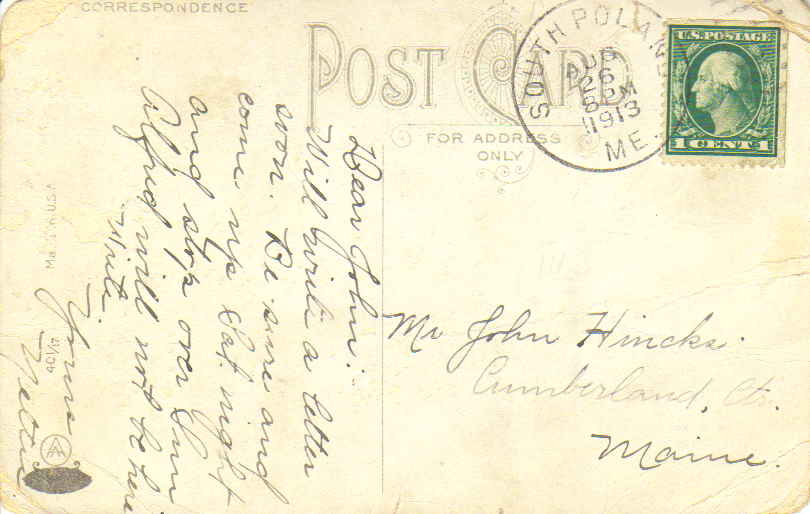 CORRESPONDENCE
POST CARD
FOR ADDRESS
ONLY
SOUTH POLAND
26
6 PM
1913
ME.
U.S. POSTAGE
1 CENT 1
Dear John:
Will write a letter
soon. Be sure and
come up Sat. night
and stop over Sun
Alfred will not be here
Write
Yours
Nettie
Mr John Hincks.
Cumberland, Ctr.
Maine.
U.S.A.